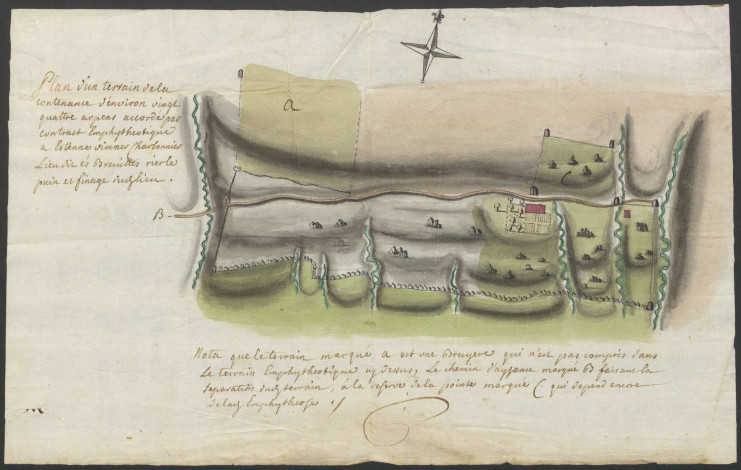 Plan d'un terrain de la
contenance d'environ vingt
quattre arpens accordé par
contract Emphytheotique
a Estienne
Lieu dit és Breuittes rier le
puin et finage dud lieu .
A
C
B
Nota que le terrain marqué a est une Bruyere qui n'est pas compris dans
Le terrain Emphytheotique cy Dessus, Le chemin d'aysance marqué B faisant la
separation dud terrain, à la reserve de la pointe marqué C qui depend encore
de lad Emphytheose ./